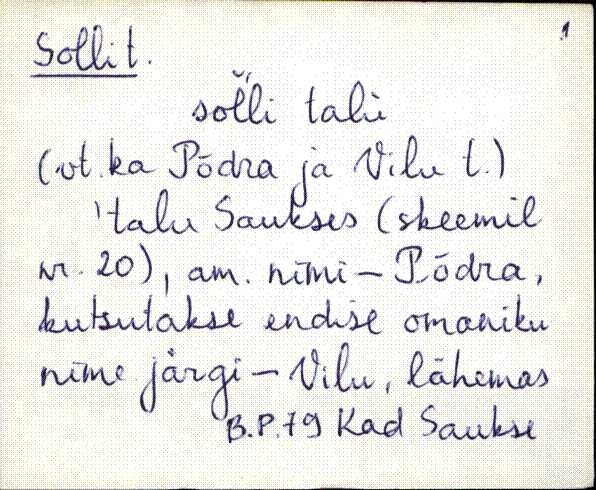 1
Solli t.
soľľi talu
(vt. ka Põdra ja Vilu t.)
'talu Saukses (skeemil
nr. 20), am. nimi – Põdra,
kutsutakse endise omaniku
nime järgi – Vilu, lähemas
B.P. 79 Kad Saukse